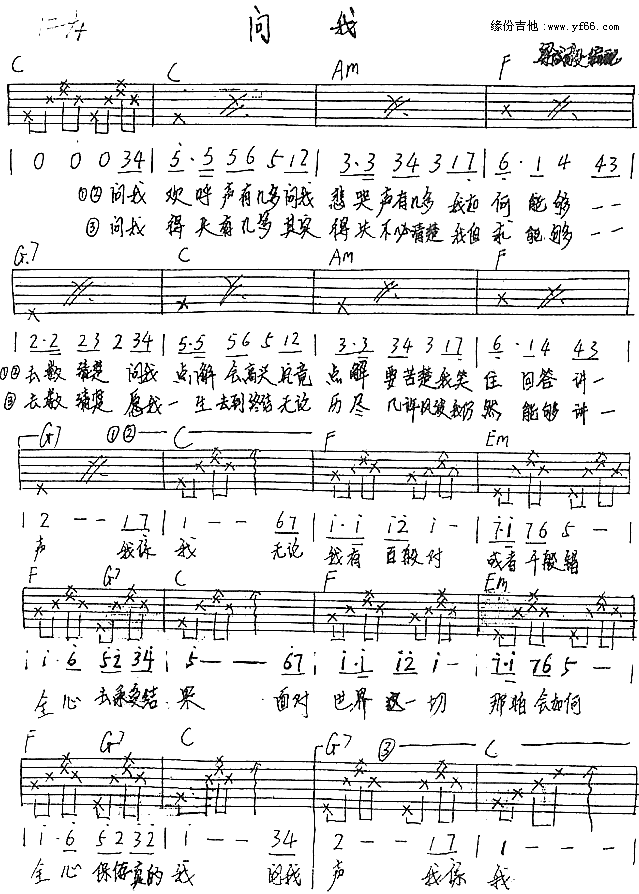 缘份吉他:www.yf66.com
问 我
C C Am F
| 0 0 0 34 | 5·5 56 5 12 | 3·3 34 3 17 | 6·1 4 43
①② 问我 欢呼声有几多问我 悲哭声有几多 我如何能够一一
③ 问我 得失有几多其实 得失不必清楚 我但求能够一一
G7 C Am F
| 2·2 23 2 34 | 5·5 56 5 12 | 3·3 34 3 17 | 6·14 43
①② 去数清楚 问我 点解会高兴 究竟 点解要苦楚 我笑住回答 讲一
③ 去数清楚 愿我一生去到终结 无论 历尽几许风波我仍然能够讲一
G7 ①② C F Em
| 2 - - 17 | 1 - - 67 | i·i i2 i - | 7·i 76 5 -
声 我係 我 无论 我有 百般对 或者千般错
F G7 C F Em
i·6 52 34 | 5 - - 67 | i·i i2 i - | 7·i 76 5 - |
全心去承受结 果 面对 世界 一切 那怕会如何
F G7 C G7 ③ C
| i·6 52 32 | 1 - - 34 | 2 - - 17 | 1 - - -
全心保存真的 我 问我 声 我係 我